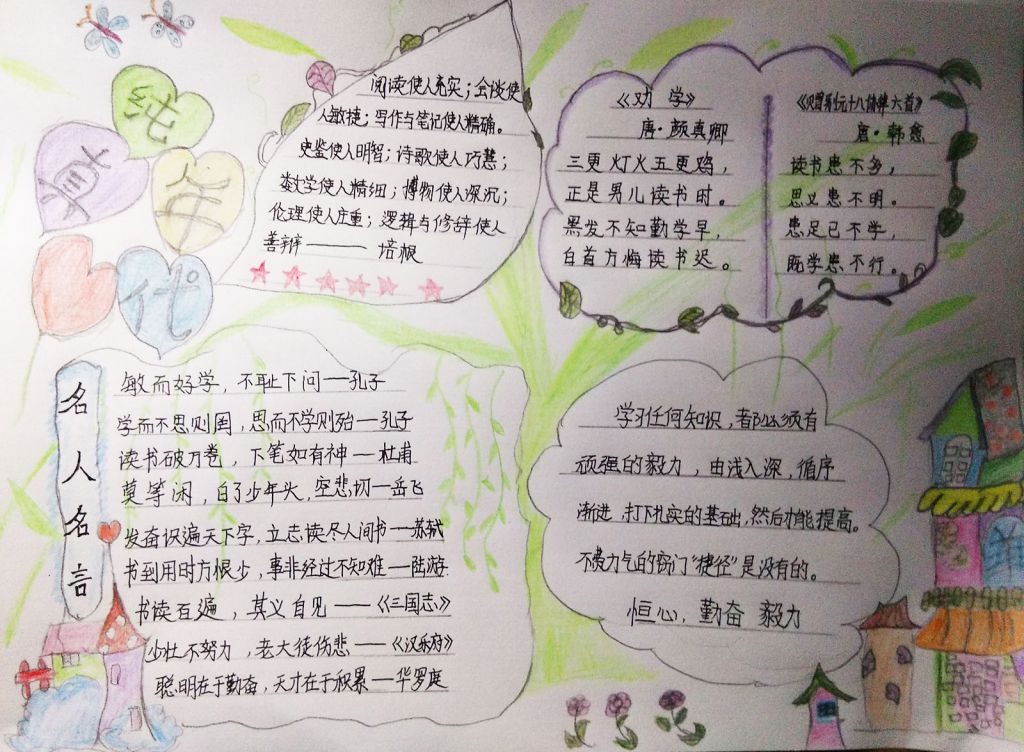 纯
真
年
代
阅读使人充实；会谈使
人敏捷；写作与笔记使人精确。
史鉴使人明智；诗歌使人巧慧；
数学使人精细；博物使人深沉；
伦理使人庄重；逻辑与修辞使人
善辩——培根
《劝 学》
唐·颜真卿
三更灯火五更鸡，
正是男儿读书时。
黑发不知勤学早，
白首方悔读书迟。
唐·韩愈
读书患不多，
思义患不明。
患足已不学，
既学患不行。
名人名言
敏而好学，不耻下问—孔子
学而不思则罔，思而不学则殆—孔子
读书破万卷，下笔如有神—杜甫
莫等闲，白了少年头，空悲切—岳飞
发奋识遍天下字，立志读尽人间书—苏轼
书到用时方恨少，事非经过不知难—陆游
书读百遍，其义自见——《三国志》
少壮不努力，老大徒伤悲——《汉乐府》
聪明在于勤奋，天才在于积累—华罗庭
学习任何知识，都必须有
顽强的毅力，由浅入深，循序
渐进，打下扎实的基础，然后才能提高。
不费力气的窍门“捷径”是没有的。
恒心，勤奋 毅力